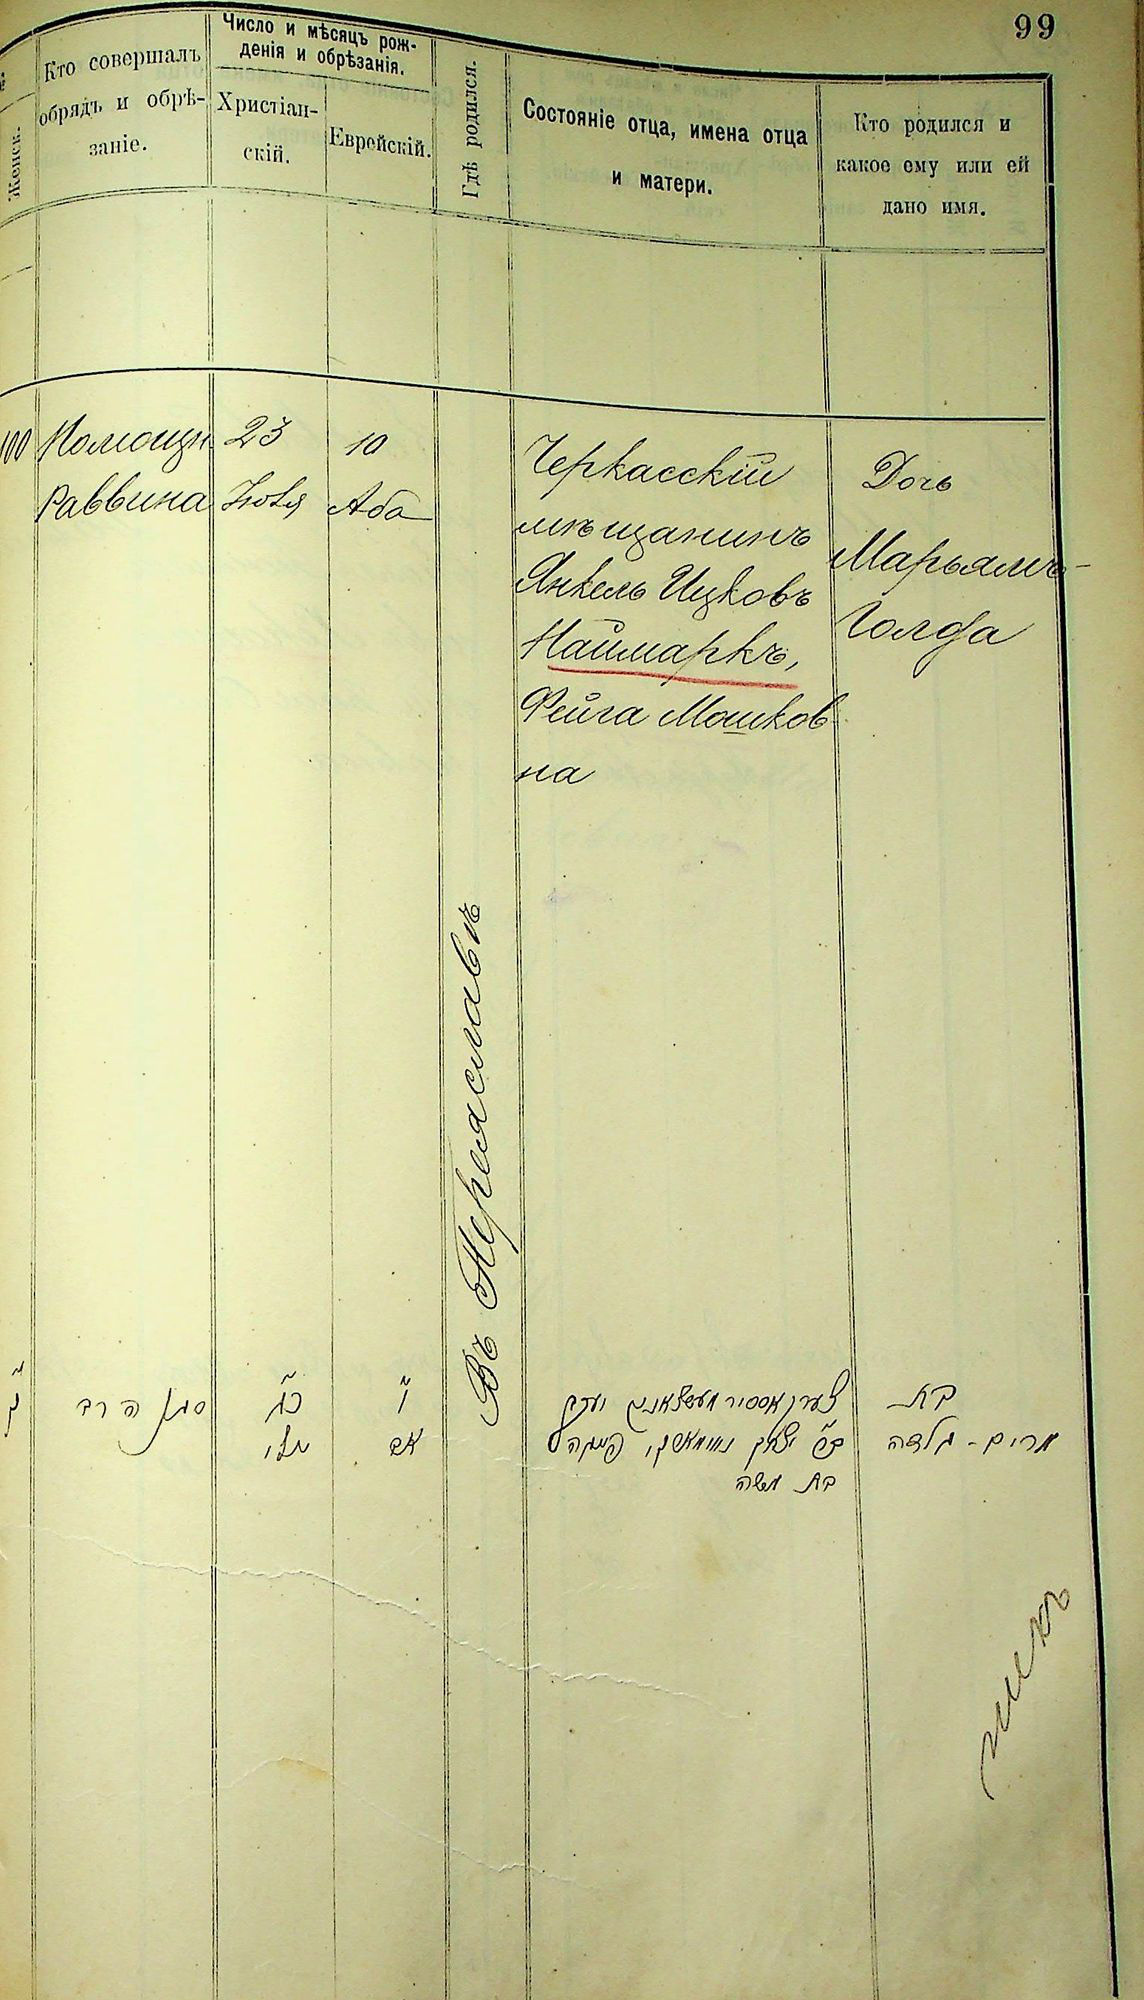 99
Женск.
Кто совершалъ
обрядъ и обрѣ-
заніе.
Число и мѣсяцъ рож-
денія и обрѣзанія.
Христіан-
скій.
Еврейскій.
Гдѣ родился.
Состояніе отца, имена отца
и матери.
Кто родился и
какое ему или ей
дано имя.
100
Помощн
Раввина
23
Іюля
10
Аба
Въ Переяславѣ
Черкасскій
мѣщанинъ
Янкель Ицковъ
Наймаркъ,
Фейга Мошков
на
Дочь
Марьямъ-
Голда
סגן הרב
כ״ג
יולי
י״
אב
יעקב
יצחק
בת משה
בת
מרים - גולדה